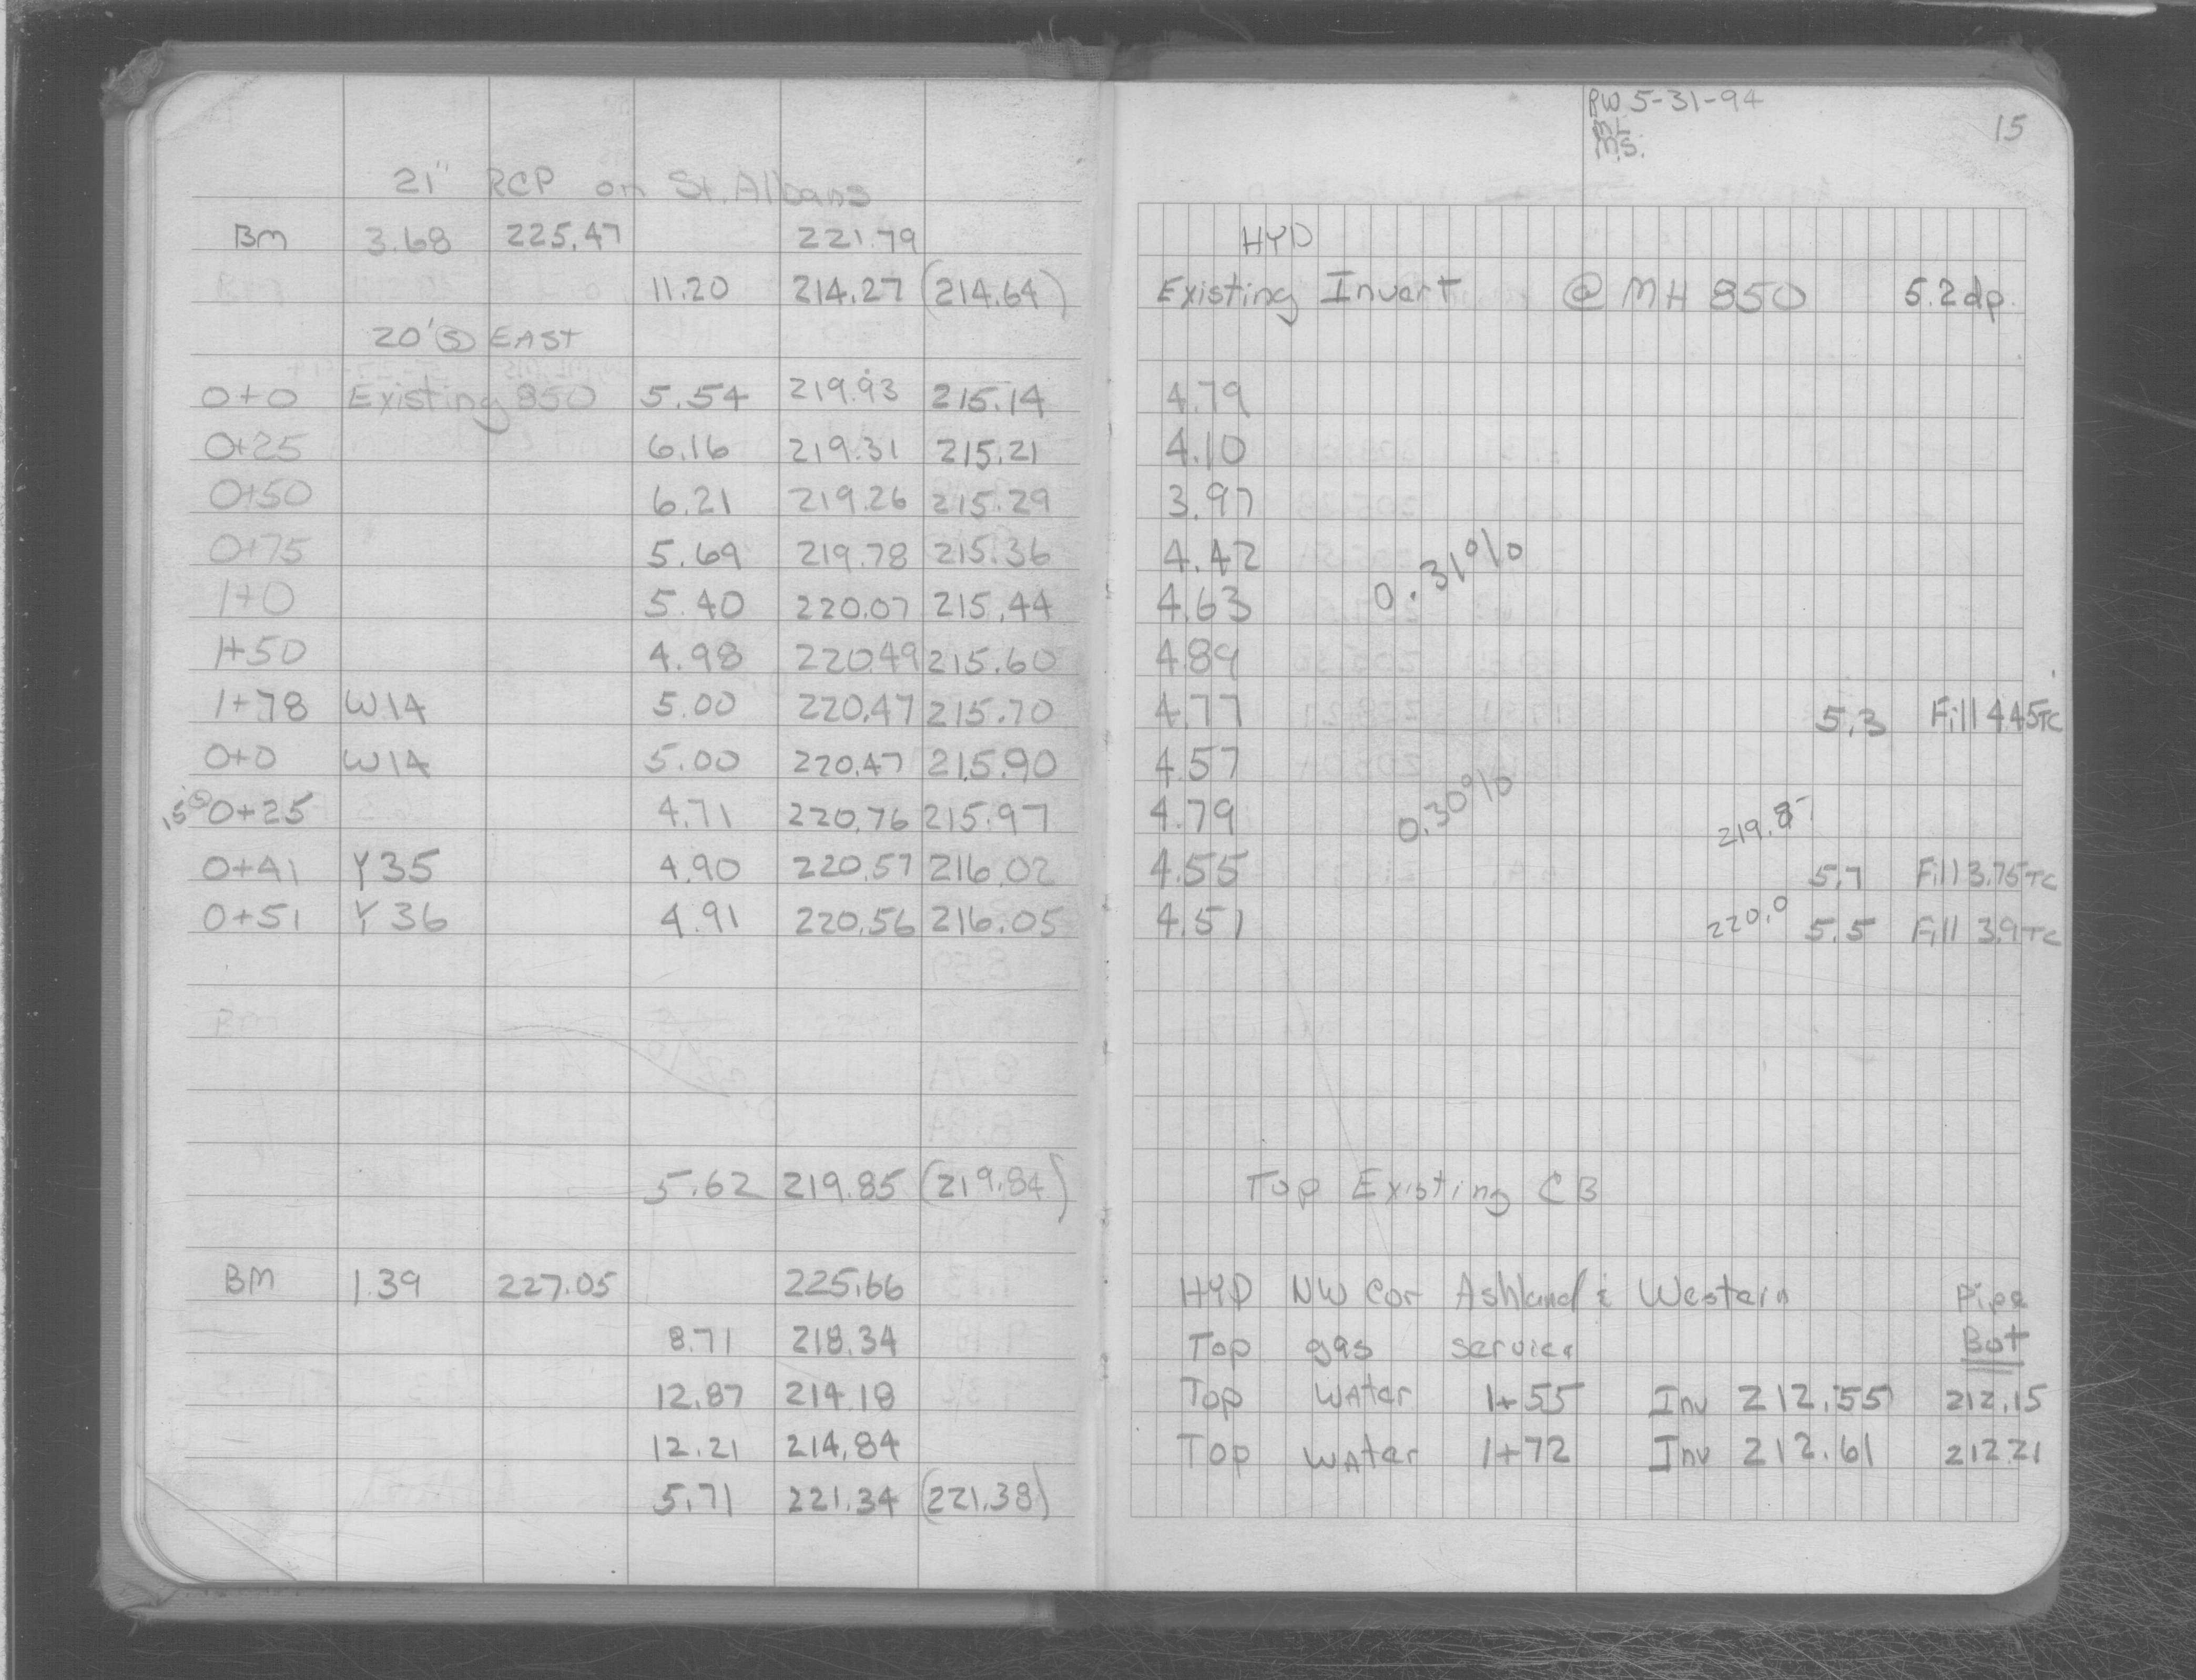 21" RCP on St. Albans
BM 3.68 225.47 221.79
11.20 214.27 (214.64)
20' (S) EAST
0+0 Existing 850 5.54 219.93 215.14
0+25 6.16 219.31 215.21
0+50 6.21 219.26 215.29
0+75 5.69 219.78 215.36
1+0 5.40 220.07 215.44
1+50 4.98 220.49 215.60
1+78 W14 5.00 220.47 215.70
0+0 W14 5.00 220.47 215.90
0+25 4.71 220.76 215.97
0+41 Y35 4.90 220.57 216.02
0+51 Y36 4.91 220.56 216.05
5.62 219.85 (219.84)
BM 1.39 227.05 225.66
8.71 218.34
12.87 214.18
12.21 214.84
5.71 221.34 (221.38)
RW 5-31-94
ML
M.S.
15
HYD
Existing Invert @ MH 850 5.2 dp.
4.79
4.10
3.97
4.42
0.31%
4.63
4.89
4.77 5.3 Fill 4.45 TC
4.57
4.79 0.30% 219.87
4.55 5.7 Fill 3.75 TC
4.51 220.0 5.5 Fill 3.9 TC
Top Existing CB
HYD NW Cor Ashland & Western Pipe
Top gas service Bot
Top Water 1+55 Inv 212.55 212.15
Top Water 1+72 Inv 212.61 212.21